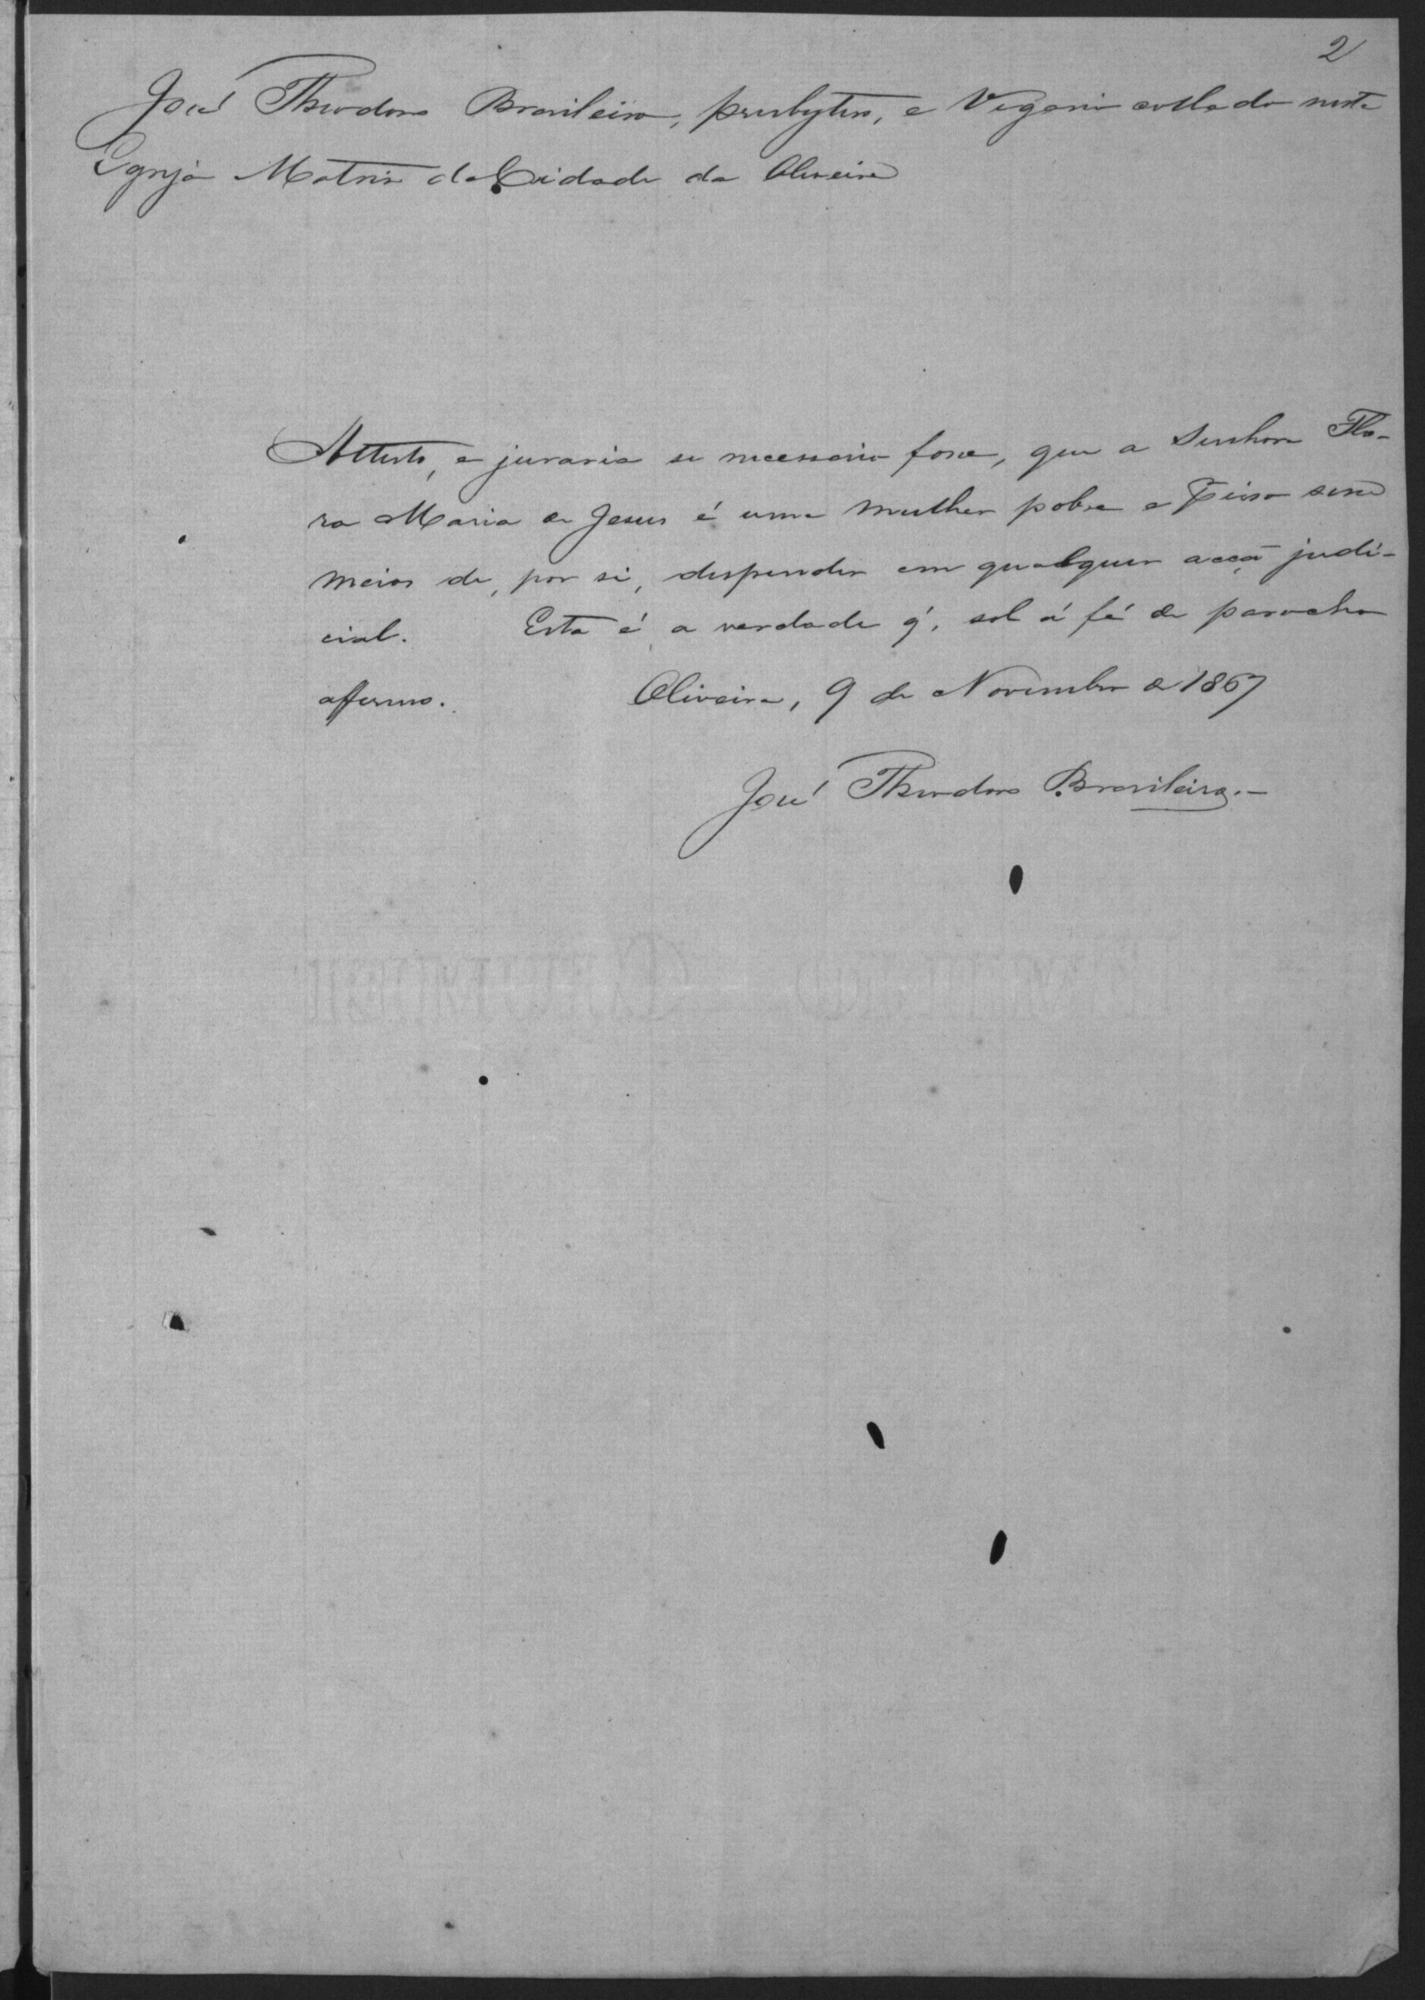 2
José Theodoro Brasileiro, presbytero, e Vigario collado nesta
Igreja Matriz da Cidade da Oliveira
Attesto, e juraria se necessario fosse, que a Senhora Flo-
ra Maria de Jesus é uma mulher pobre e sem
meios de, por si, despender em qualquer acção judi-
cial. Esta é a verdade q', sob á fé de parocho
affirmo. Oliveira, 9 de Novembro de 1867
José Theodoro Brasileiro.—